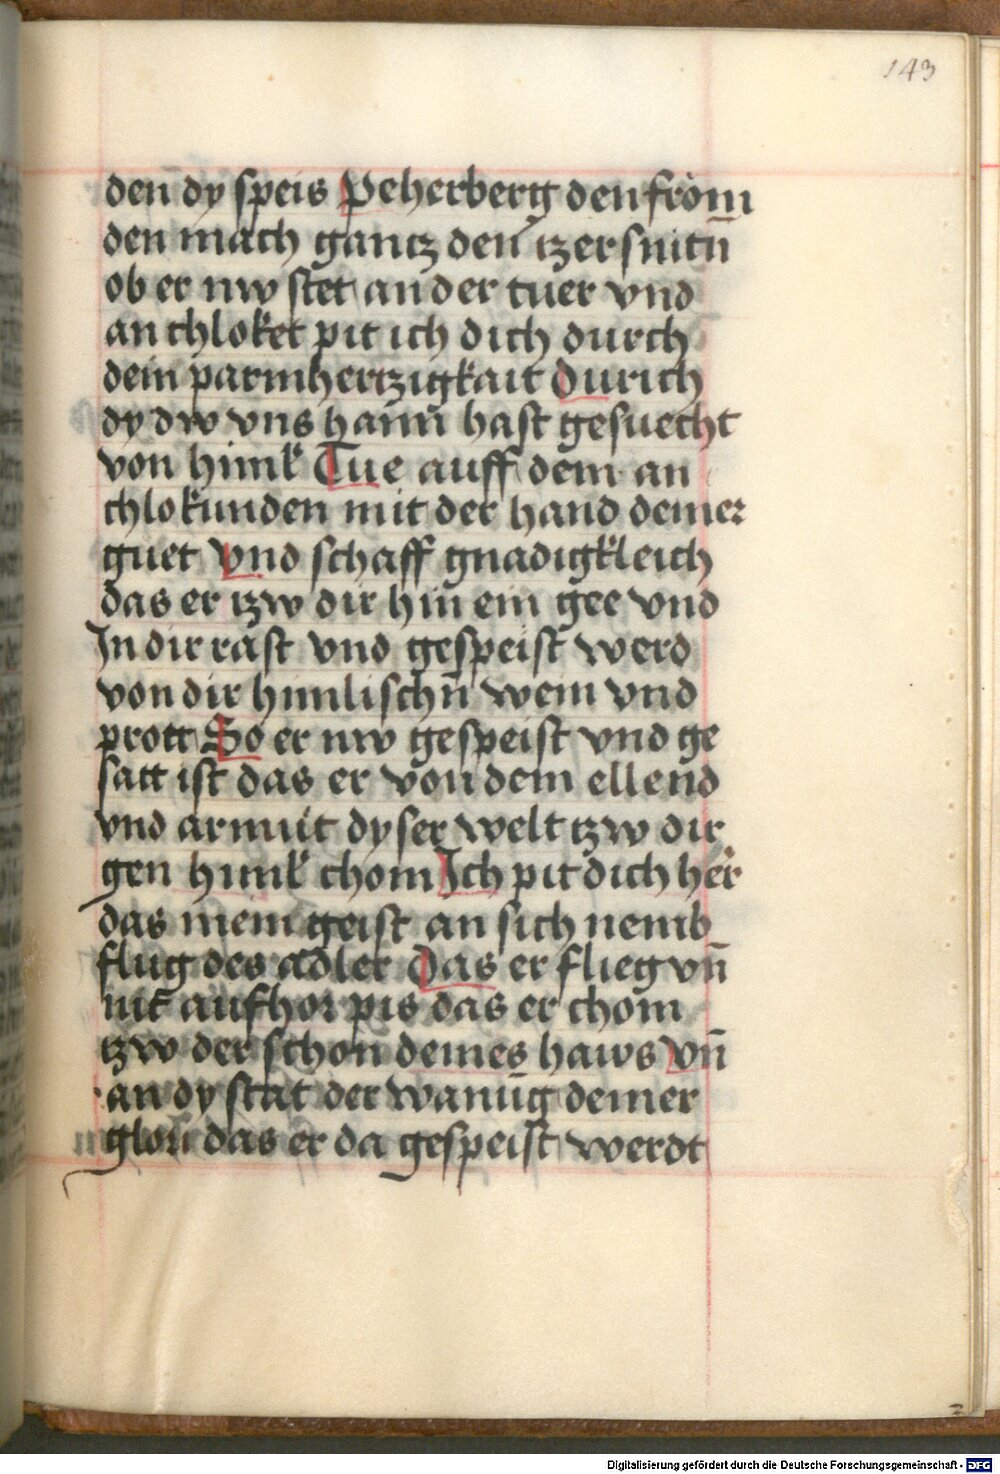 143
den dy speis Peherberg den fröm
den mach gantz den tzersnitn̄
ob er nw stet an der tuer vnd
an chloket pit ich dich durch
dein parmhertzigkait Durich
dy dw vns haim̄ hast gesuecht
von himl Tue auff dem an
chlokunden mit der hand deiner
guet Vnd schaff gnadigkleich
das er tzw dir hin ein gee vnd
In dir rast vnd gespeist werd
von dir himlischn̄ wein vnd
prott So er nw gespeist vnd ge
satt ist das er von dem ellend
vnd armuit dyser welt tzw dir
gen himl chom Ich pit dich her
das mein geist an sich nemb
flug des adler Das er flieg vn̄
nit aufhor pis das er chom
tzw der schon deines haws Vn̄
an dy stat der wanūg deiner
glori das er da gespeist werdt
Digitalisierung gefördert durch die Deutsche Forschungsgemeinschaft - DFG